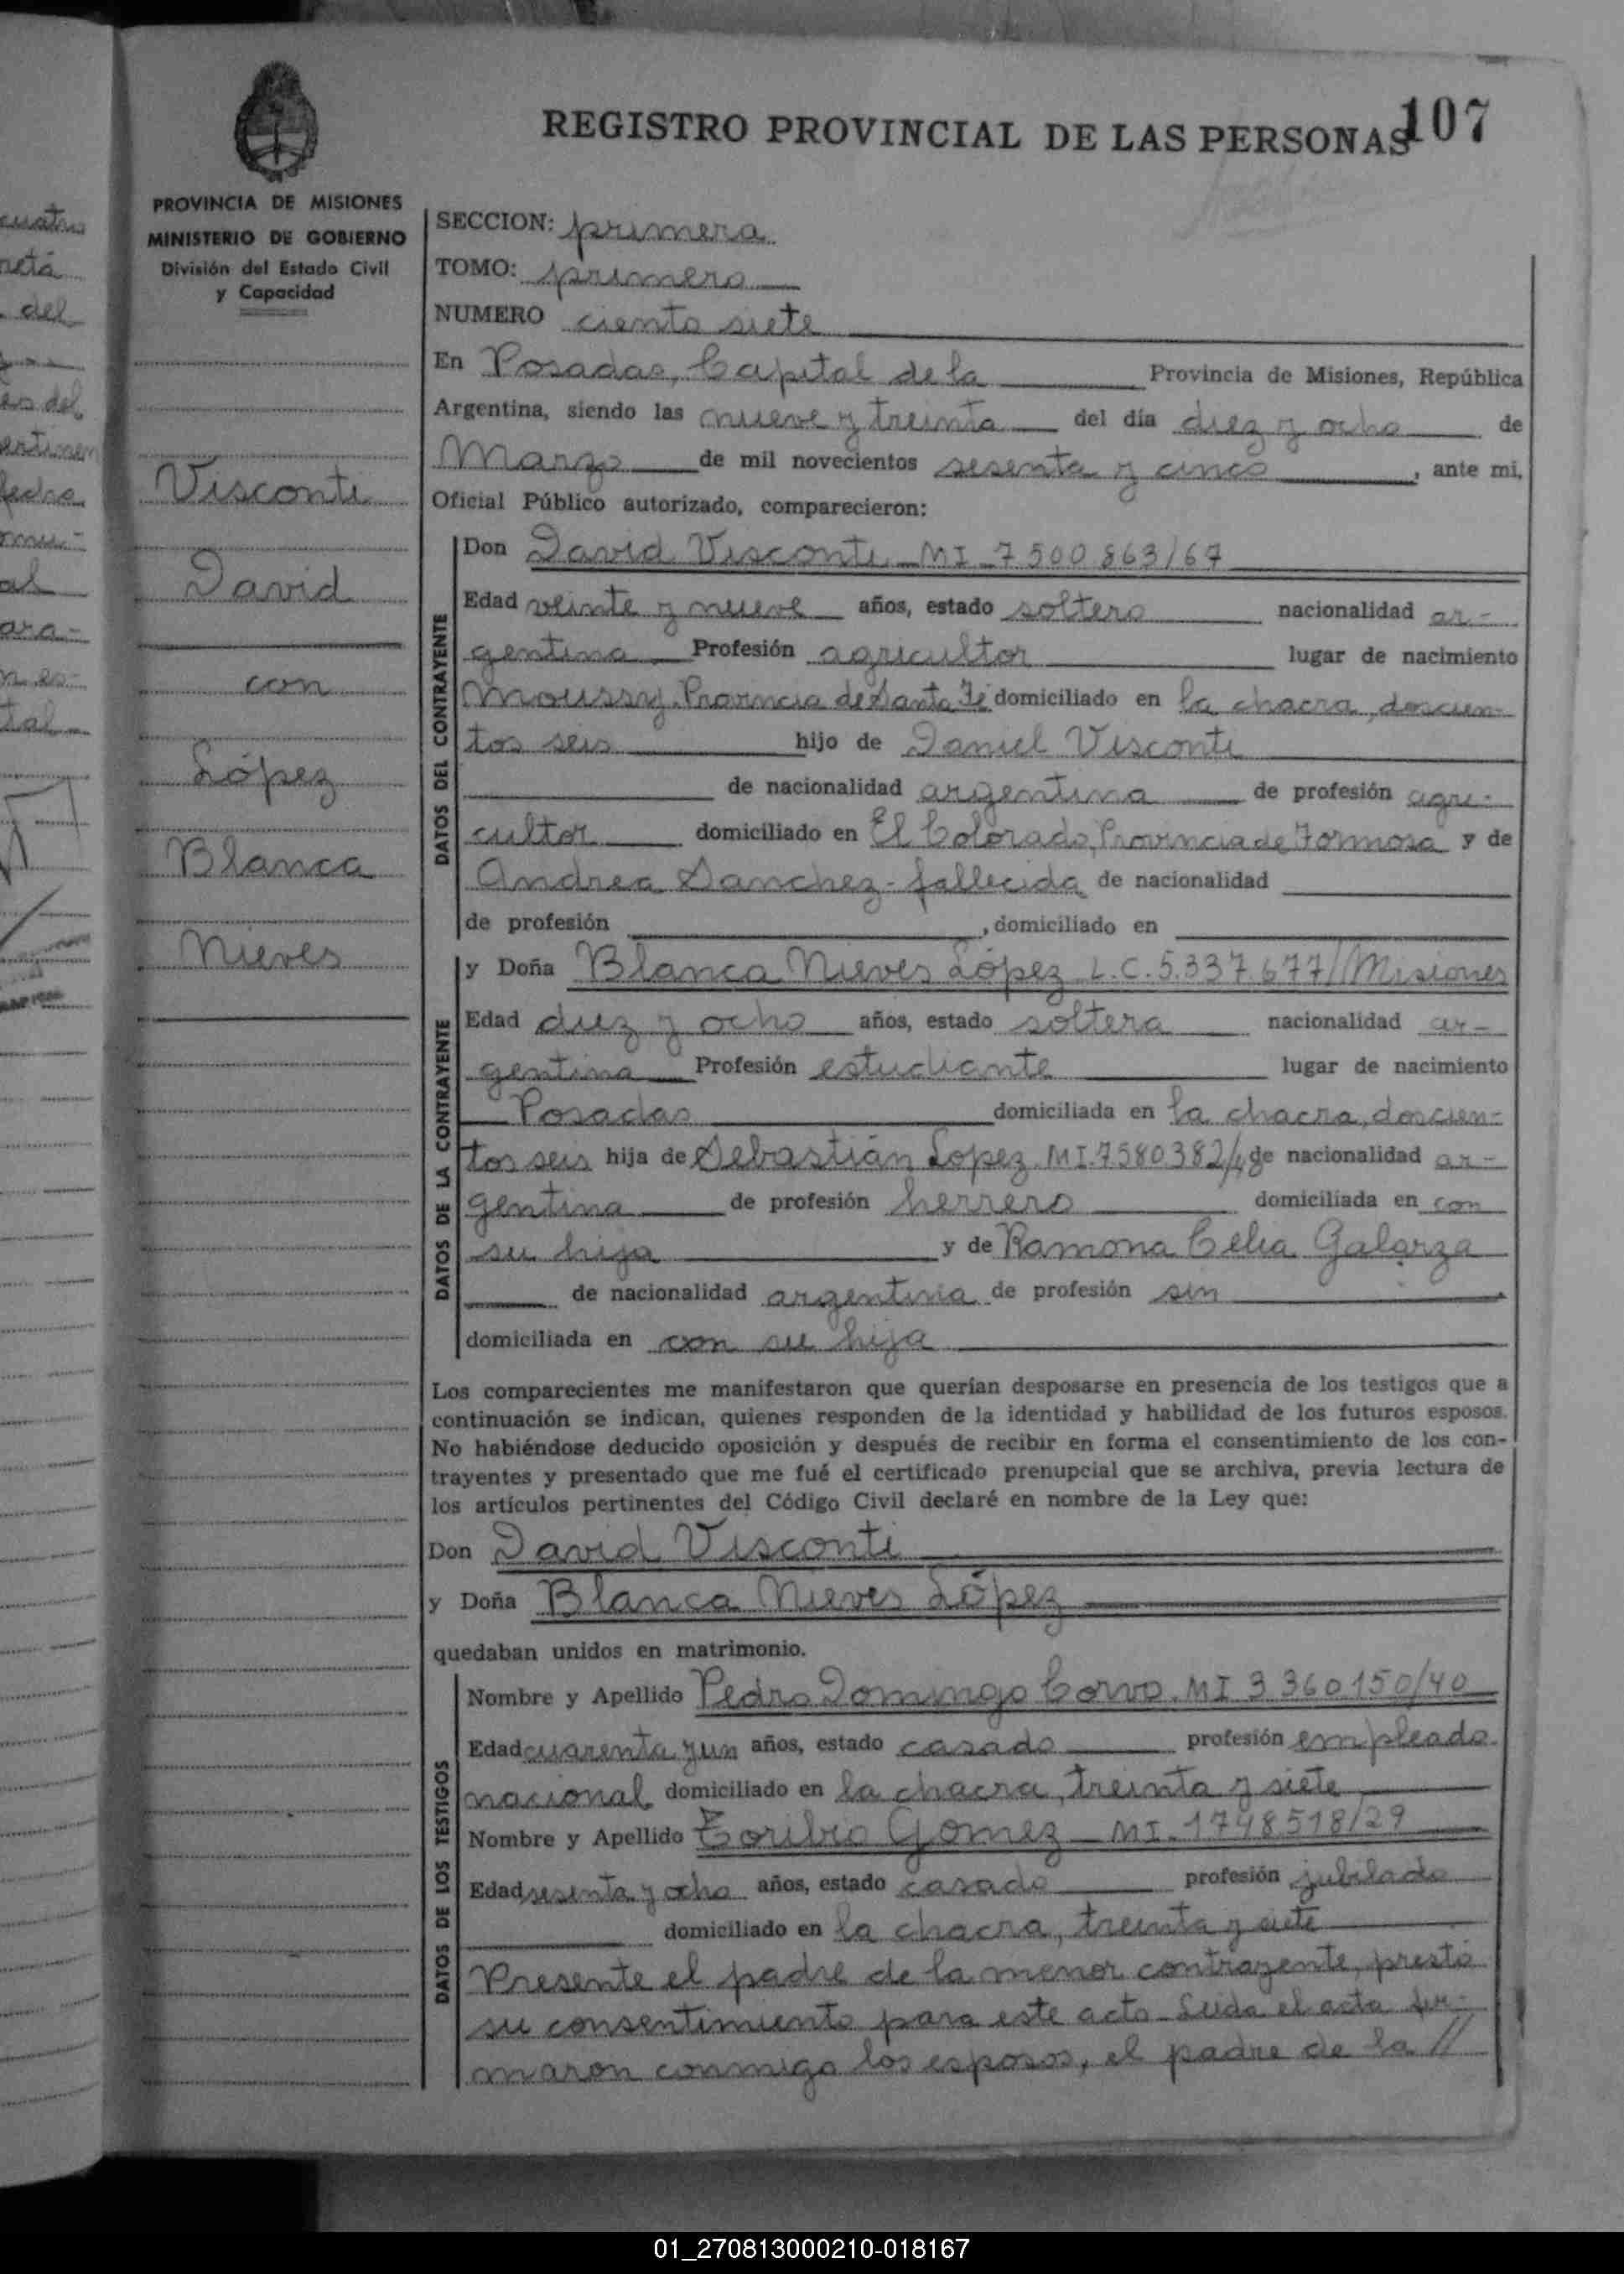 REGISTRO PROVINCIAL DE LAS PERSONAS
107
PROVINCIA DE MISIONES
MINISTERIO DE GOBIERNO
División del Estado Civil
y Capacidad
Visconti
David
con
López
Blanca
Nieves
SECCION: primera
TOMO: primero
NUMERO ciento siete
En Posadas, Capital de la Provincia de Misiones, República
Argentina, siendo las nueve y treinta del día diez y ocho de
Marzo de mil novecientos sesenta y cinco, ante mi,
Oficial Público autorizado, comparecieron:
DATOS DEL CONTRAYENTE
Don David Visconti MI 7500863/67
Edad veinte y nueve años, estado soltero nacionalidad ar-
gentina Profesión agricultor lugar de nacimiento
Moussy. Provincia de Santa Fé domiciliado en la chacra, doscien-
tos seis hijo de Daniel Visconti
de nacionalidad argentina de profesión agri-
cultor domiciliado en El Colorado, Provincia de Formosa y de
Andrea Sanchez - fallecida de nacionalidad
de profesión , domiciliado en
DATOS DE LA CONTRAYENTE
y Doña Blanca Nieves López L.C. 5.337.677//Misiones
Edad diez y ocho años, estado soltera nacionalidad ar-
gentina Profesión estudiante lugar de nacimiento
Posadas domiciliada en la chacra, doscien-
tos seis hija de Sebastián Lopez MI. 7580382/ de nacionalidad ar-
gentina de profesión herrero domiciliada en con
su hija y de Ramona Celia Galarza
de nacionalidad argentina de profesión sin
domiciliada en con su hija
Los comparecientes me manifestaron que querían desposarse en presencia de los testigos que a
continuación se indican, quienes responden de la identidad y habilidad de los futuros esposos.
No habiéndose deducido oposición y después de recibir en forma el consentimiento de los con-
trayentes y presentado que me fué el certificado prenupcial que se archiva, previa lectura de
los artículos pertinentes del Código Civil declaré en nombre de la Ley que:
Don David Visconti
y Doña Blanca Nieves López
quedaban unidos en matrimonio.
DATOS DE LOS TESTIGOS
Nombre y Apellido Pedro Domingo Corvo. MI 3360150/40
Edad cuarenta y un años, estado casado profesión empleado
nacional domiciliado en la chacra, treinta y siete
Nombre y Apellido Toribio Gomez MI. 1748518/29
Edad sesenta y ocho años, estado casado profesión jubilado
domiciliado en la chacra, treinta y siete
Presente el padre de la menor contrayente, prestó
su consentimiento para este acto. Leida el acta fir-
maron conmigo los esposos, el padre de la //
01_270813000210-018167